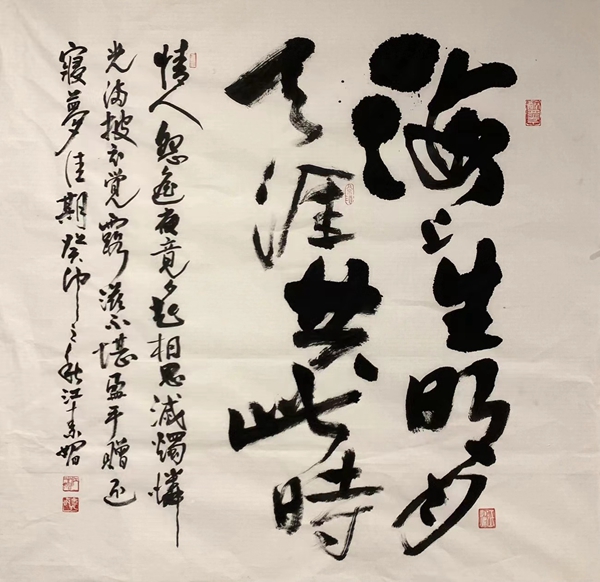 海上生明月
天涯共此時
情人怨遙夜竟夕起相思滅燭憐
光滿披衣覺露滋不堪盈手贈还
寢夢佳期癸卯之秋江素媚